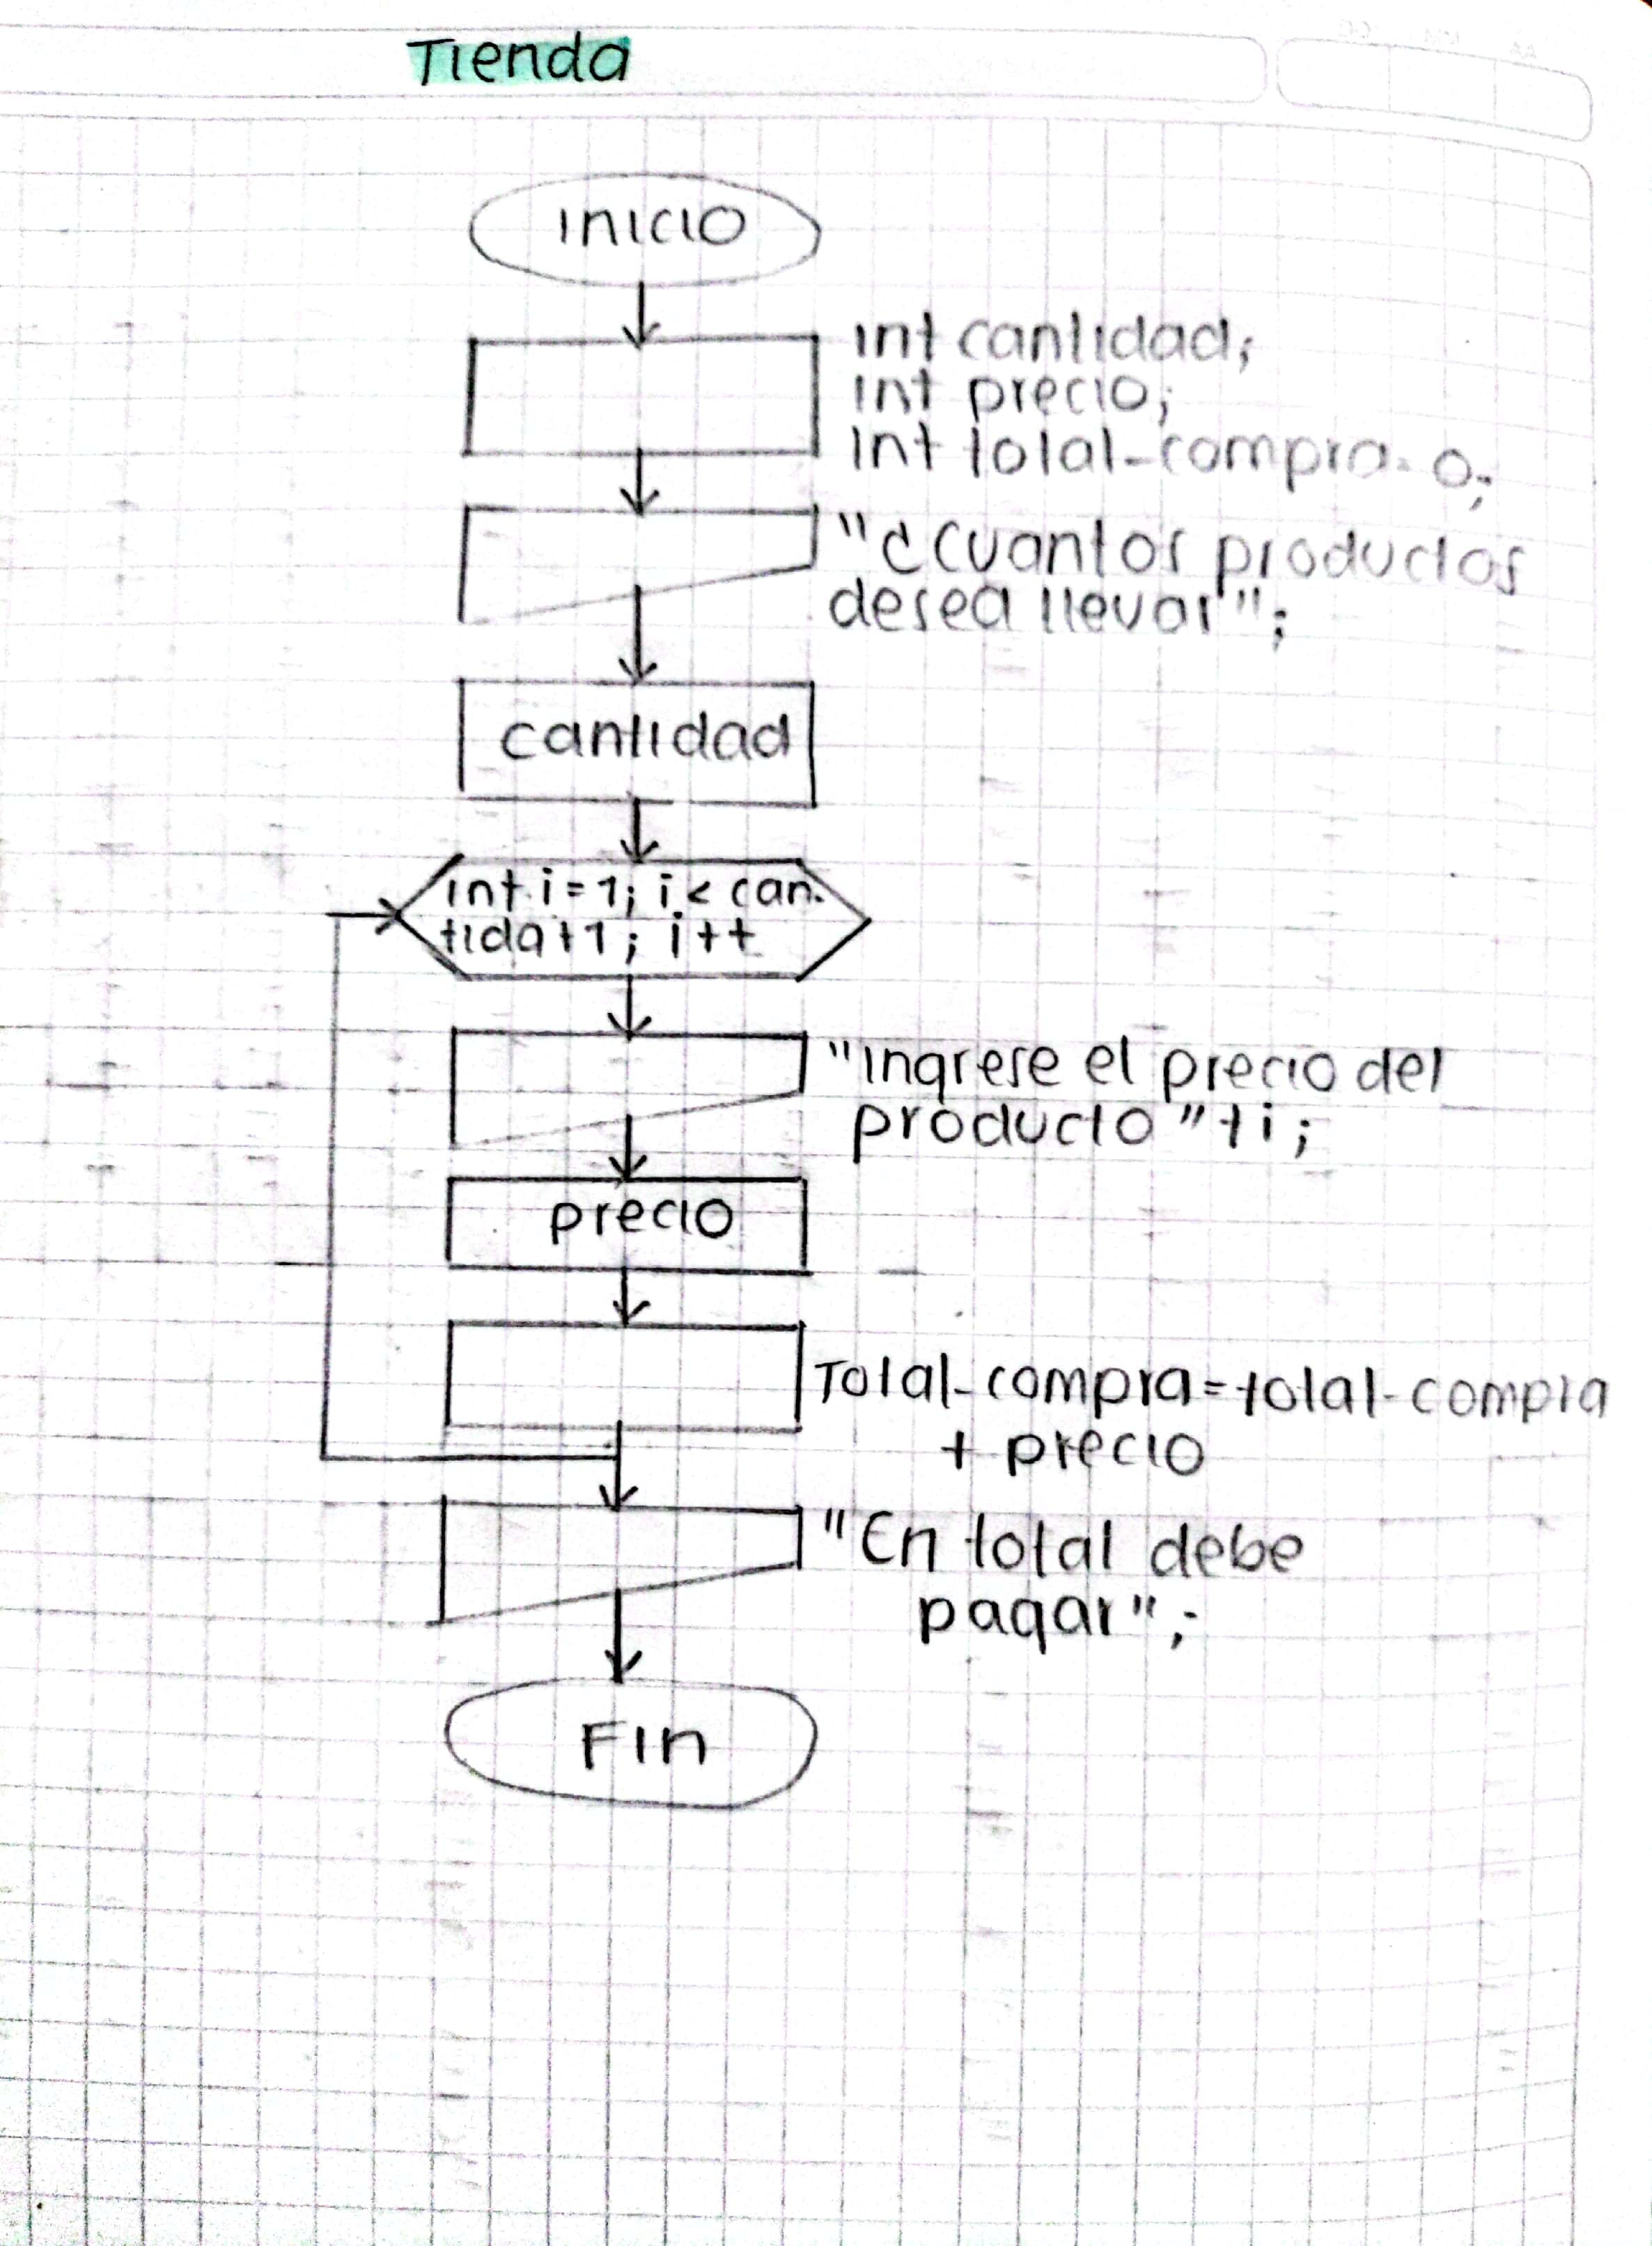 Tienda
inicio
int cantidad;
int precio;
int total-compra = 0;
"¿Cuantos productos
desea llevar";
cantidad
int i = 1; i < can-
tida+1; i++
"Ingrese el precio del
producto" + i;
precio
Total-compra = total-compra
+ precio
"En total debe
pagar";
Fin